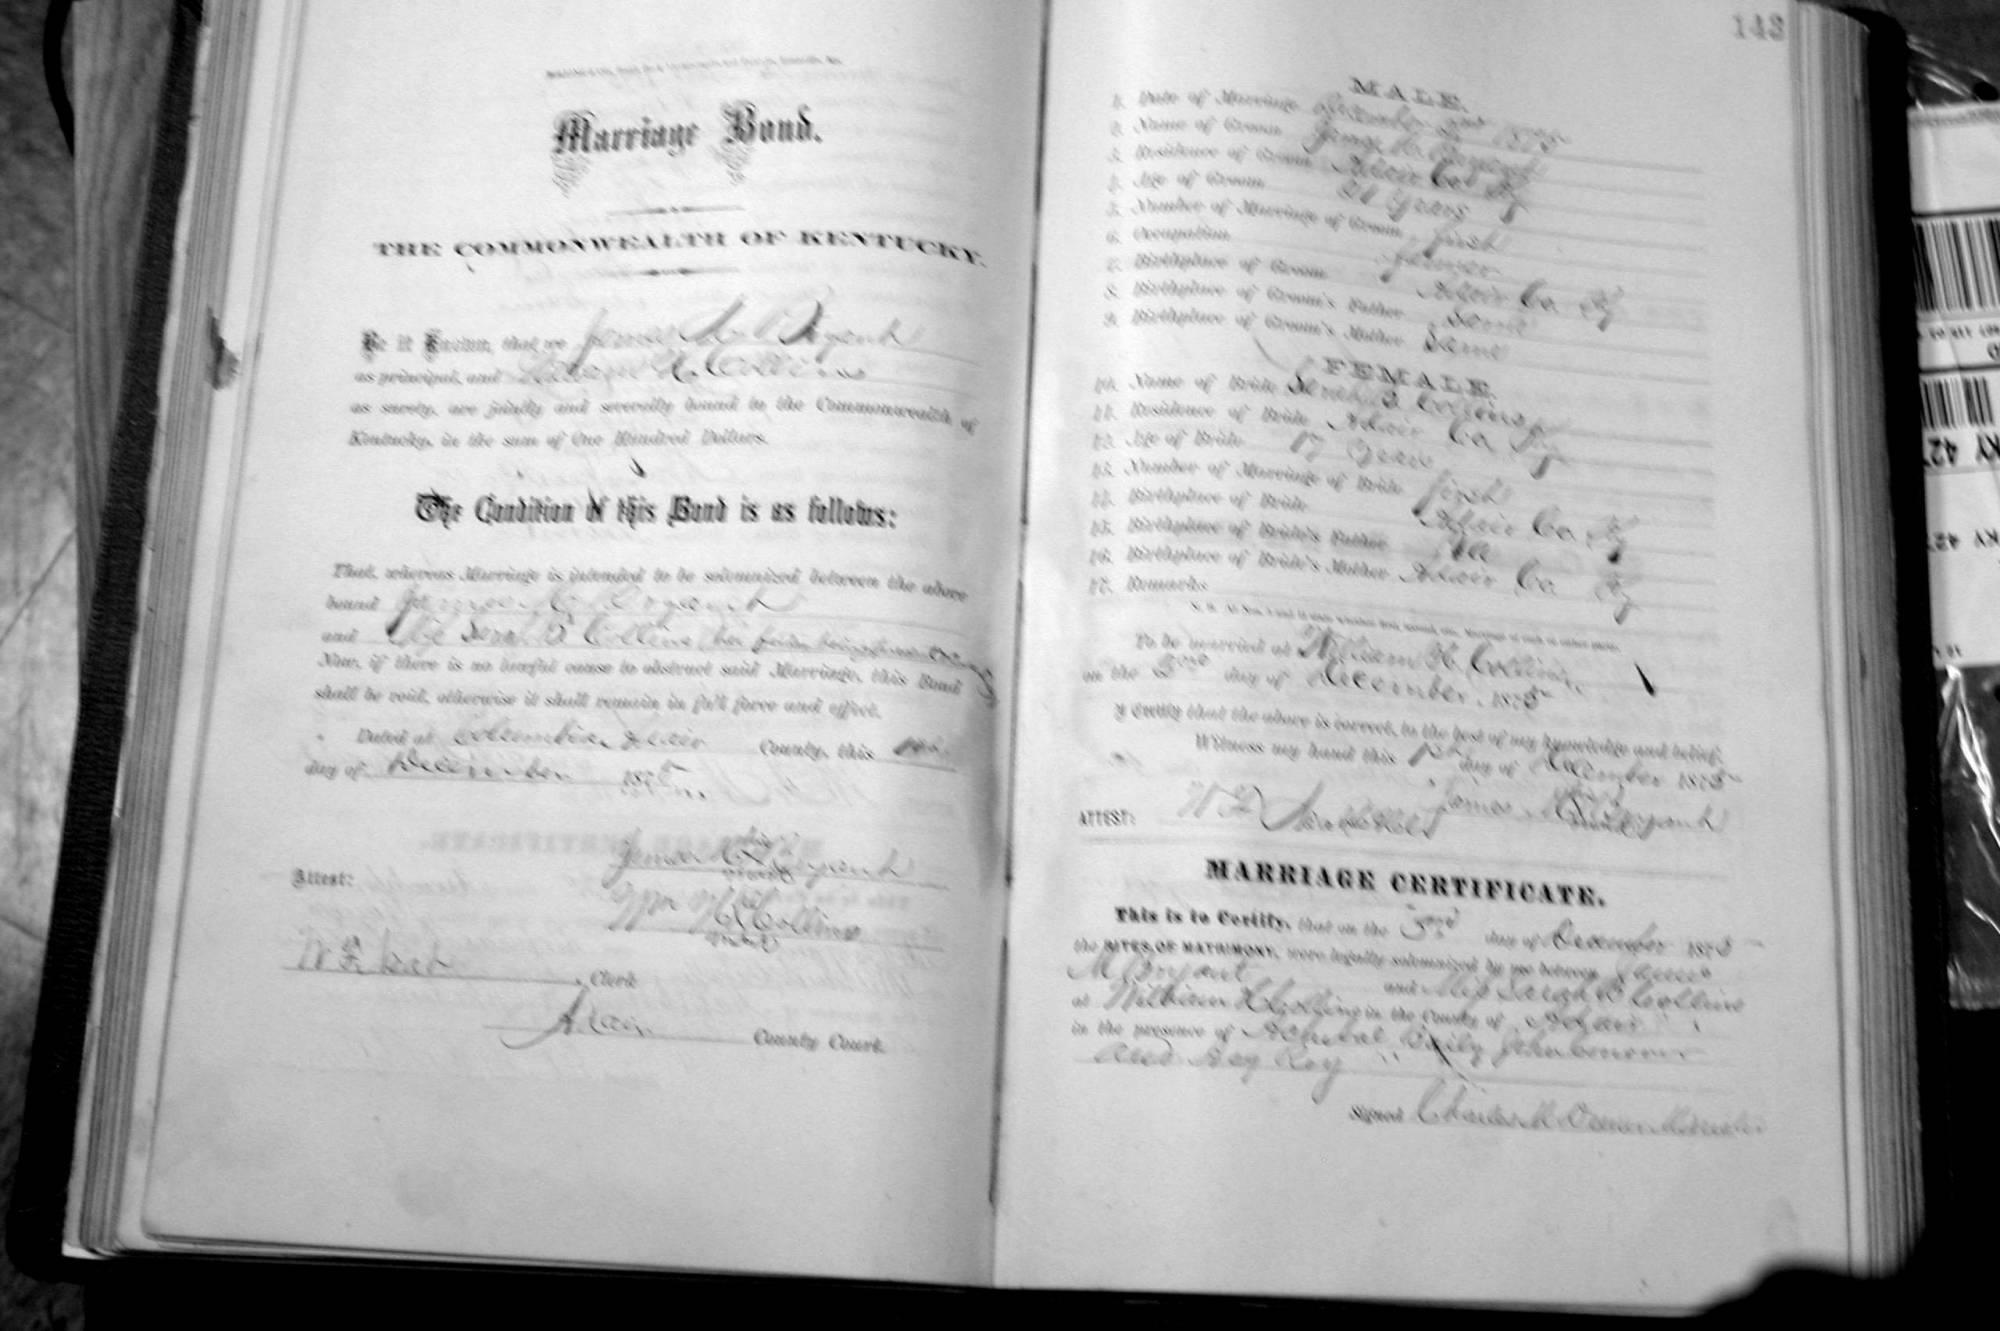 Marriage Bond.
THE COMMONWEALTH OF KENTUCKY.
Be it Known, that we James M Bryant
as principal, and William H. Collins
as surety, are jointly and severally bound to the Commonwealth of
Kentucky, in the sum of One Hundred Dollars.
The Condition of this Bond is as follows:
That, whereas Marriage is intended to be solemnized between the above
bound James M. Bryant
and Miss Sarah B Collins his father being
Now, if there is no lawful cause to obstruct said Marriage, this Bond
shall be void, otherwise it shall remain in full force and effect.
Dated at Columbia, Adair County, this 1st
day of December 1875
his
James M Bryant
mark
Attest:
his
Wm H Collins
mark
W F , Clerk
Adair County Court.
143
MALE.
1. Date of Marriage December 1875
2. Name of Groom James M. Bryant
3. Residence of Groom Adair Co Ky
4. Age of Groom 21 Years
5. Number of Marriage of Groom first
6. Occupation farmer
7. Birthplace of Groom Adair Co. Ky
8. Birthplace of Groom's Father Same
9. Birthplace of Groom's Mother Same
FEMALE.
10. Name of Bride Sarah B Collins
11. Residence of Bride Adair Co Ky
12. Age of Bride 17 Years
13. Number of Marriage of Bride first
14. Birthplace of Bride Adair Co. Ky
15. Birthplace of Bride's Father
16. Birthplace of Bride's Mother Adair Co Ky
17. Remarks
To be married at William H. Collins,
on the 3rd day of December, 1875
I Certify that the above is correct, to the best of my knowledge and belief.
Witness my hand this 1st day of December 1875
his
James M Bryant
mark
ATTEST: W F
MARRIAGE CERTIFICATE.
This is to Certify, that on the 3rd day of December 1875
the RITES OF MATRIMONY, were legally solemnized by me between James
M Bryant and Miss Sarah B Collins
at William H Collins in the County of Adair
in the presence of Archibal Baily John
and Roy
Signed Charles M Minister
KY 427